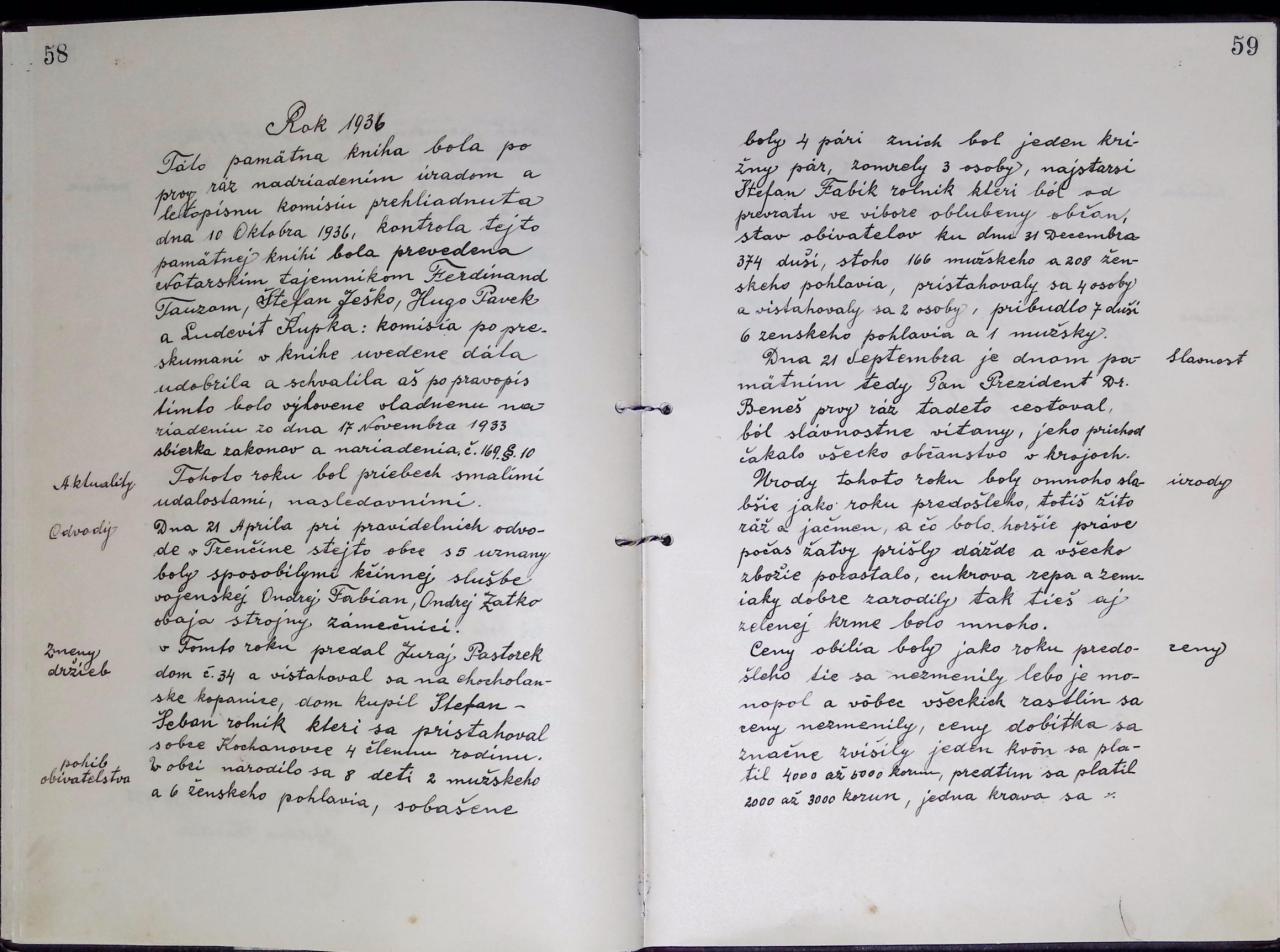 58
Rok 1936
Táto pamätna kniha bola po
prvy ráz nadriadením úradom a
letopisnu komisiu prehliadnuta
dna 10 Oktobra 1936, kontrola tejto
pamätnej knihi bola prevedena
Notarskim tajemnikom Ferdinand
Tauzom, Štefan Ješko, Hugo Pavek
a Ludevit Kupka: komisia po pre-
skumaní v knihe uvedene dáta
udobrila a schvalila aš po pravopis
tímto bolo výhovene vladnemu na-
riadeniu zo dna 17 Novembra 1933
sbierka zakonov a nariadenia, č. 169. §. 10
Aktuality. Tohoto roku bol priebech smalimi
udalostami, nasledovními.
Odvody Dna 21 Aprila pri pravidelnich odvo-
de v Trenčíne stejto obce s 5 uznany
boly sposobilymi kčinnej službe
vojenskéj Ondrej Fabian, Ondrej Zatko
obaja strojny zámečnici.
Zmeny v Tomto roku predal Juraj Pastorek
držieb dom č. 34 a vistahoval sa na chocholan-
ske kopanice, dom kupil Stefan -
Šeban rolnik kteri sa pristahoval
sobce Kochanovce 4 člennu rodinu.
pohib V obci narodilo sa 8 deti 2 mužskeho
obivatelstva a 6 ženskeho pohlavia, sobašene
59
boly 4 pári znich bol jeden kri-
žny pár, zomrely 3 osoby, najstarsi
Štefan Fabik rolnik kteri ból od
prevratu ve vibore oblubeny občan,
stav obivatelov ku dnu 31 Decembra
374 duší, stoho 166 mužskeho a 208 žen-
skeho pohlavia, pristahovaly sa 4 osoby
a vistahovaly sa 2 osoby, pribudlo 7 duší
6 zenskeho pohlavia a 1 mužsky.
Dna 21 Septembra je dnom pa- Slavnost
mätním tedy Pan Prezident Dr.
Beneš prvy ráz tadeto cestoval,
ból slávnostne vítany, jeho prichod
čakalo všecko občanstvo v krojoch.
Urody tohoto roku boly omnoho sla- úrody
bšie jako roku predošleho, totiš žito
ráž a jačmen, a čo bolo horšie práve
počas žatvy prišly dážde a všecko
zbožie porastalo, cukrova repa a zem-
iaky dobre zarodily tak tieš aj
zelenej krme bolo mnoho.
Ceny obilia boly jako roku predo- ceny
šleho tie sa nezmenily lebo je mo-
nopol a vôbec všeckich rastlín sa
ceny nezmenily, ceny dobitka sa
značne zvišily jeden kvôn sa pla-
til 4000 až 5000 korun, predtím sa platil
2000 až 3000 korun, jedna krava sa ·/.